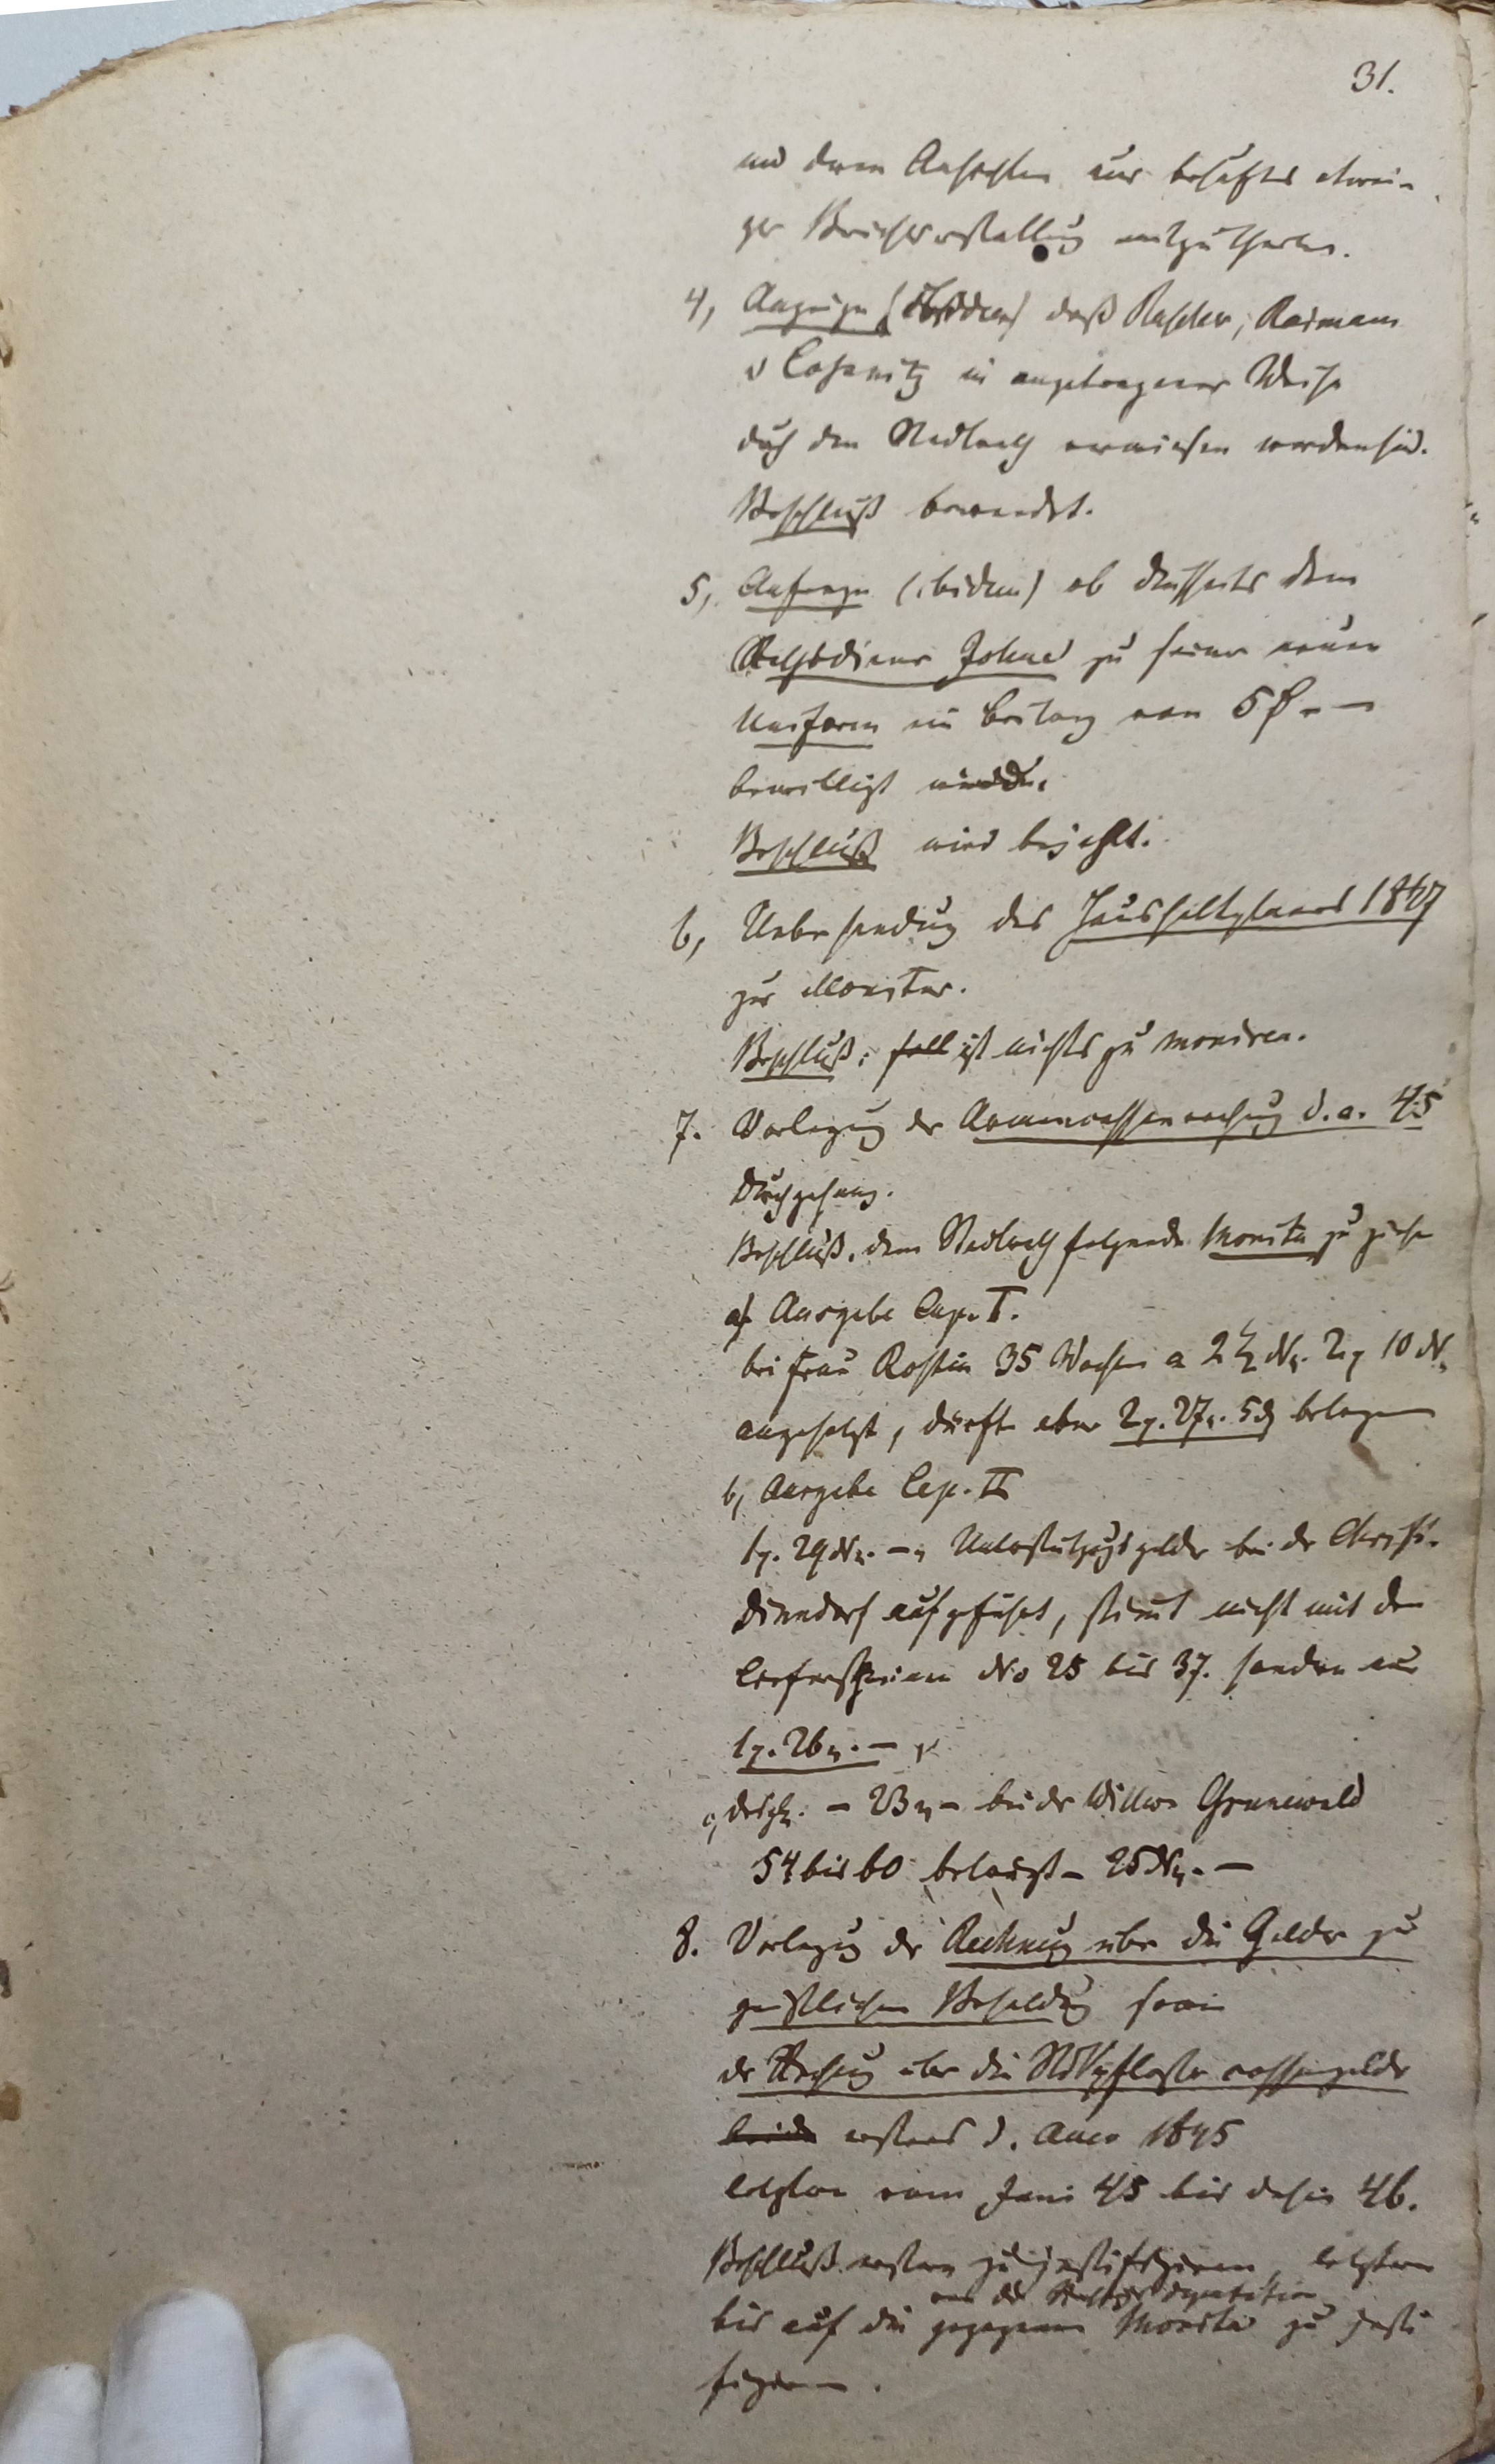 31.
und deren Ansichten uns behufs etwai-
ger Berichterstattung mitzutheilen.
4, Anzeige (ibidem) daß Rascher, Raimann
u Casanitz in angetragener Weise
durch den Stadtrath verwiesen worden sind.
Beschluß bewendet.
5, Anfrage (ibidem) ob diesseits dem
Rathsdiener Johne zu seiner neuen
Uniform ein Beitrag von 5 ₰ – –
bewilligt würde.
Beschluß wird bejaht.
6, Uebersendung des Haushaltplanes 1847
zur Monitur.
Beschluß: ist nichts zu moniren.
7. Vorlegung der Armencassenrechnung d. a. 45
Durchgehung.
Beschluß. dem Stadtrath folgende Monita zu ziehen
a) Ausgabe Cap. I.
bei Frau Rostin 35 Wochen a 2½ Ngr. 2 10 N.
angesetzt, dürfte aber 2. 27. 5 ₰ betragen
b, Ausgabe Cap. II
1. 29 Ngr. – Unterstützungsgelder bei der Christ.
Dinndorf aufgeführt, stimmt nicht mit den
Lieferscheinen No 25 bis 37. sondern nur
1. 26. –
c, desgl. – 23 – bei der Wittwe Grunewald
54 bis 60 beträgt – 25 Ngr. –
8. Vorlegung der Rechnung über die Gelder zu
geistlichen Besoldung sowie
der Rechnung über die cassengelder
ersteres d. Anno 1845
letztere vom Juni 45 bis dahin 46.
Beschluß. erstere zu justifiziren, letztere
von der deputation
bis auf die gezogenen Monita zu justi
fiziren.